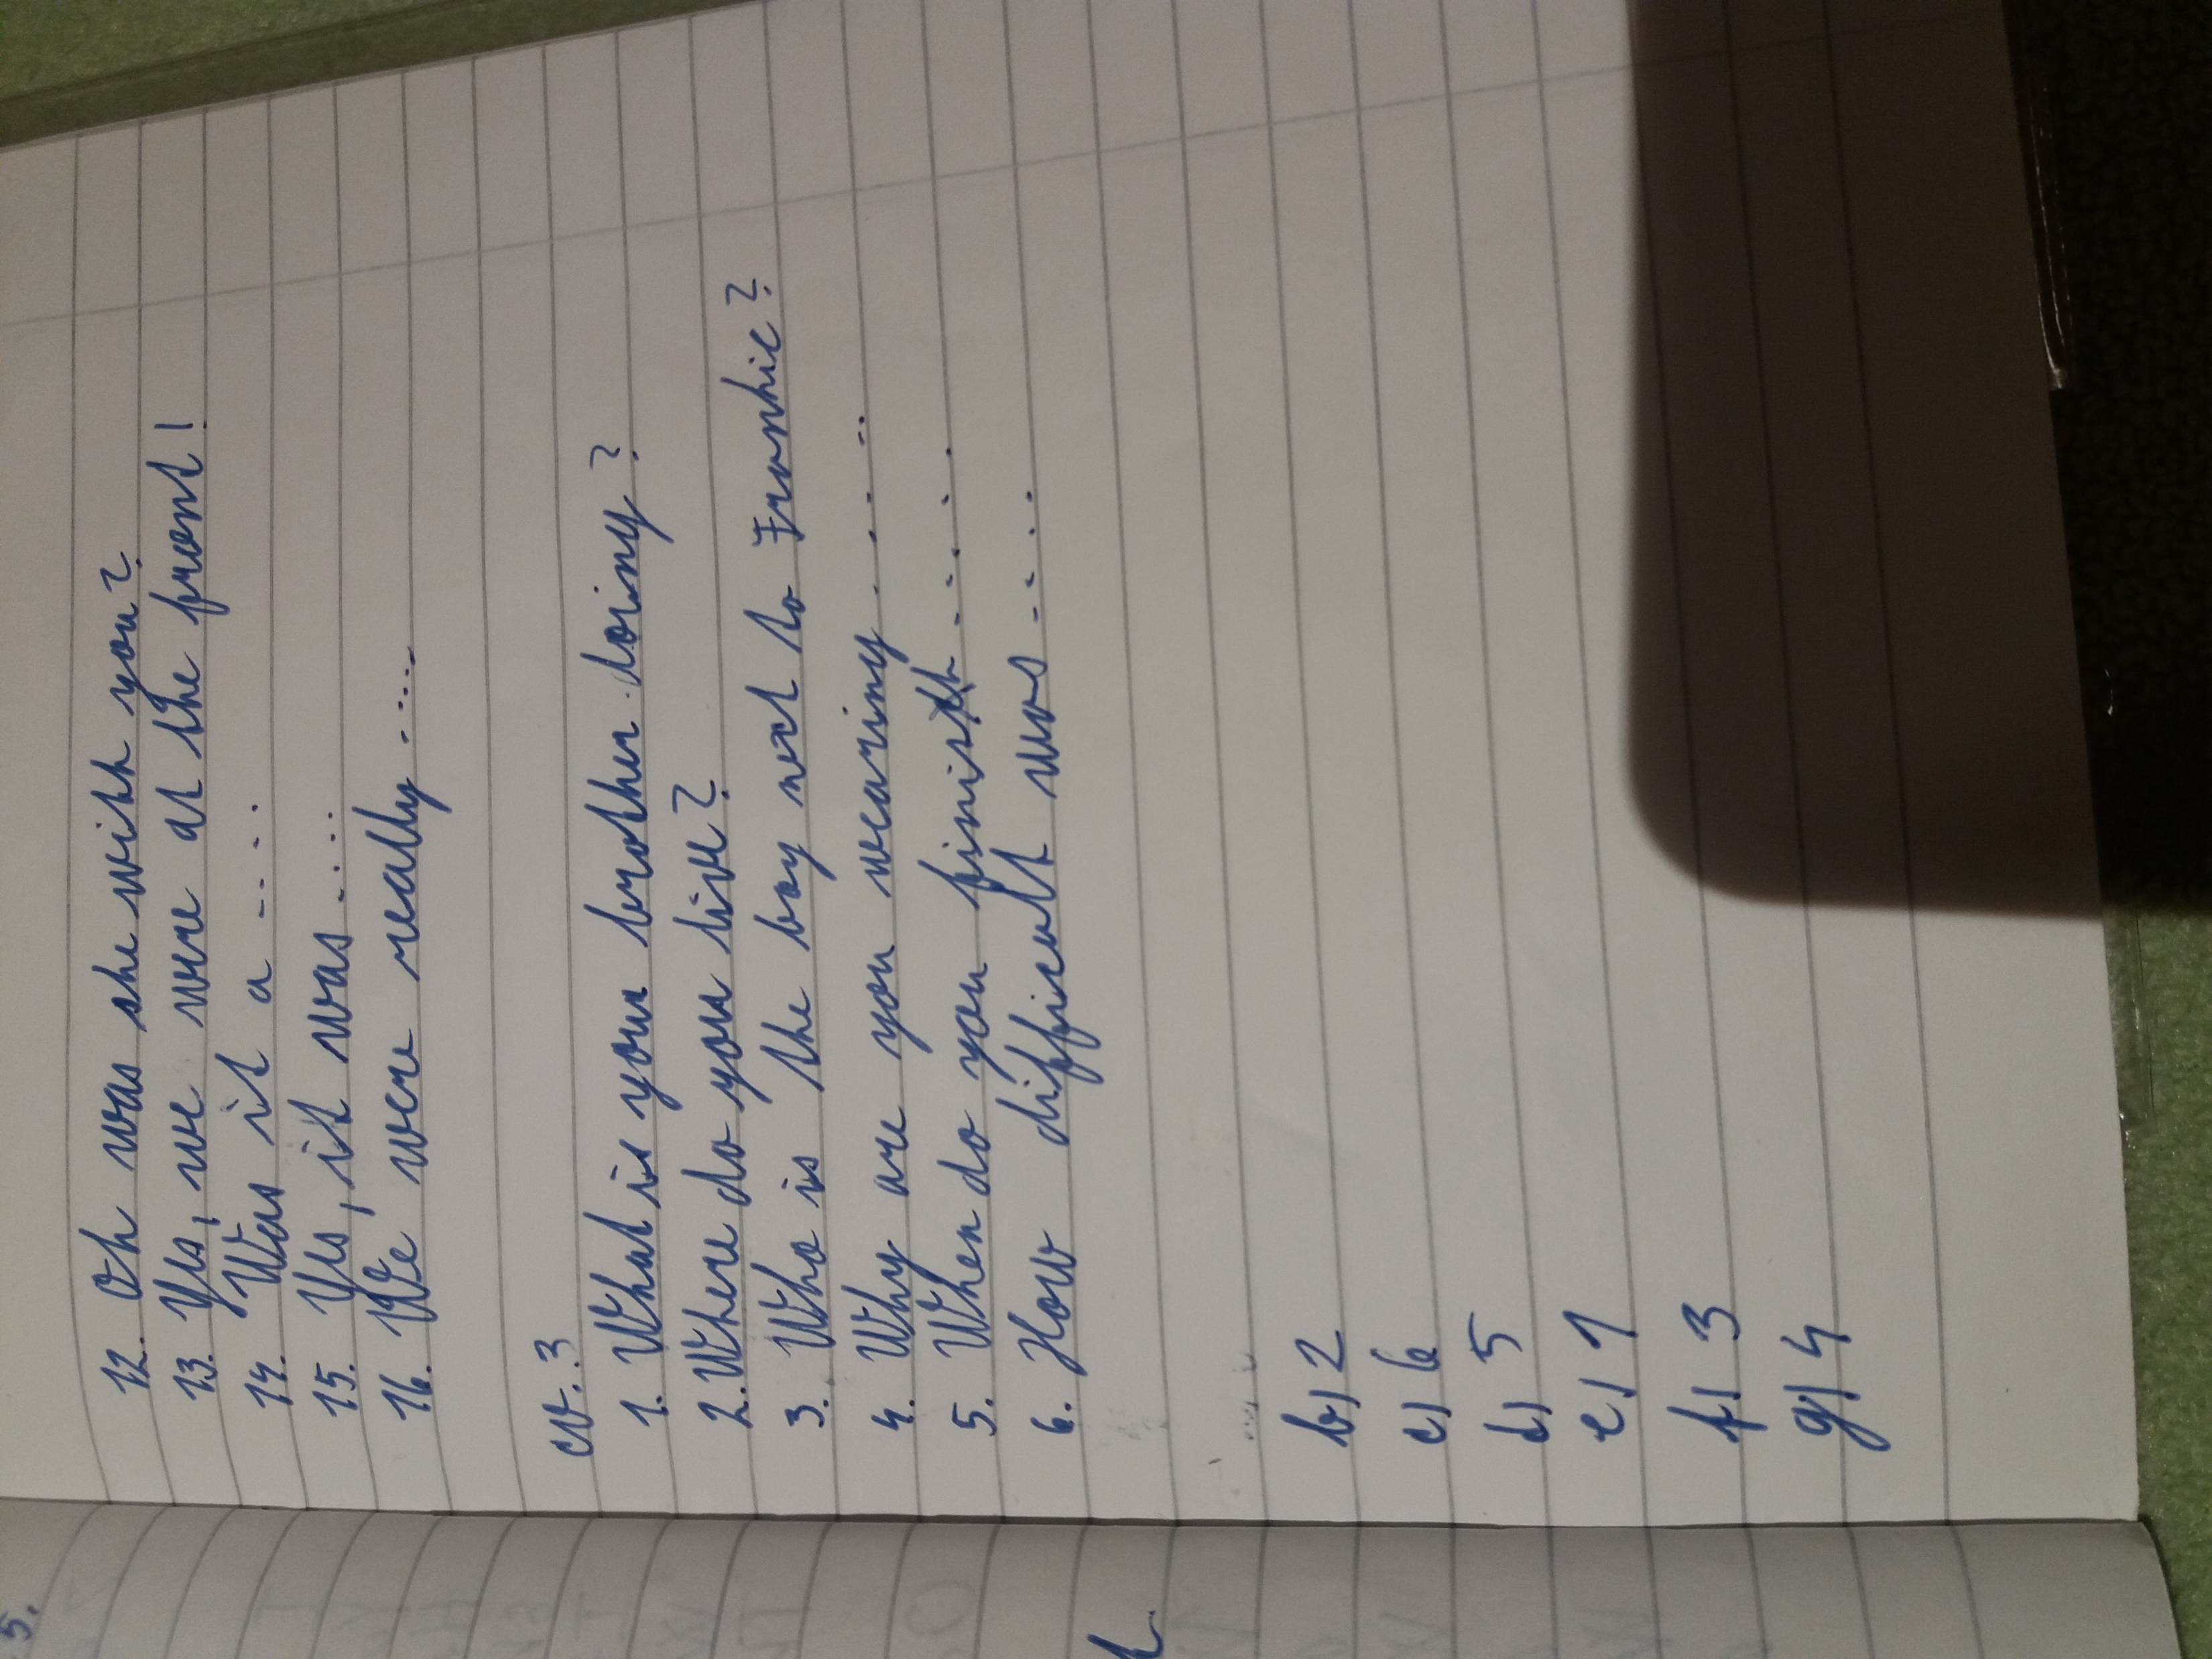 12. Oh was she with you?
13. Yes, we were at the front!
14. Was it a .....
15. Yes, it was ....
16. We were really ....
cv. 3
1. What is your brother doing?
2. Where do you live?
3. Who is the boy next to Frankie?
4. Why are you wearing .....
5. When do you finish .....
6. How difficult was .....
b) 2
c) 6
d) 5
e) 1
f) 3
g) 4
5.